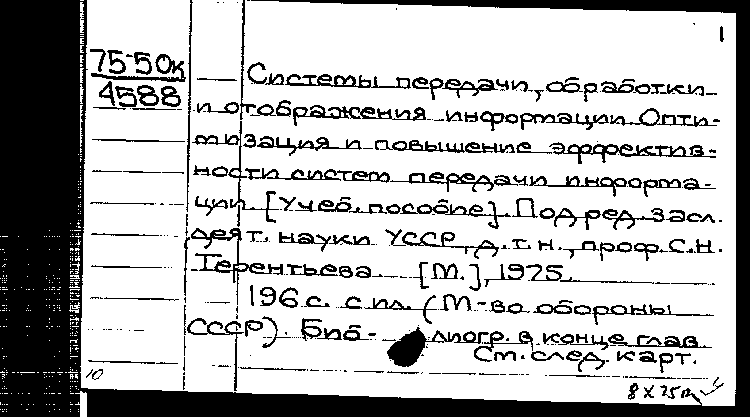 1
75-50к
4588
Системы передачи, обработки
и отображения информации. Опти-
мизация и повышение эффектив-
ности систем передачи информа-
ции. [Учеб. пособие]. Под ред. засл.
деят. науки УССР, д.т.н., проф. С.Н.
Терентьева. [М.], 1975.
196 с. с ил. (М-во обороны
СССР). Биб- лиогр. в конце глав.
См. след. карт.
10